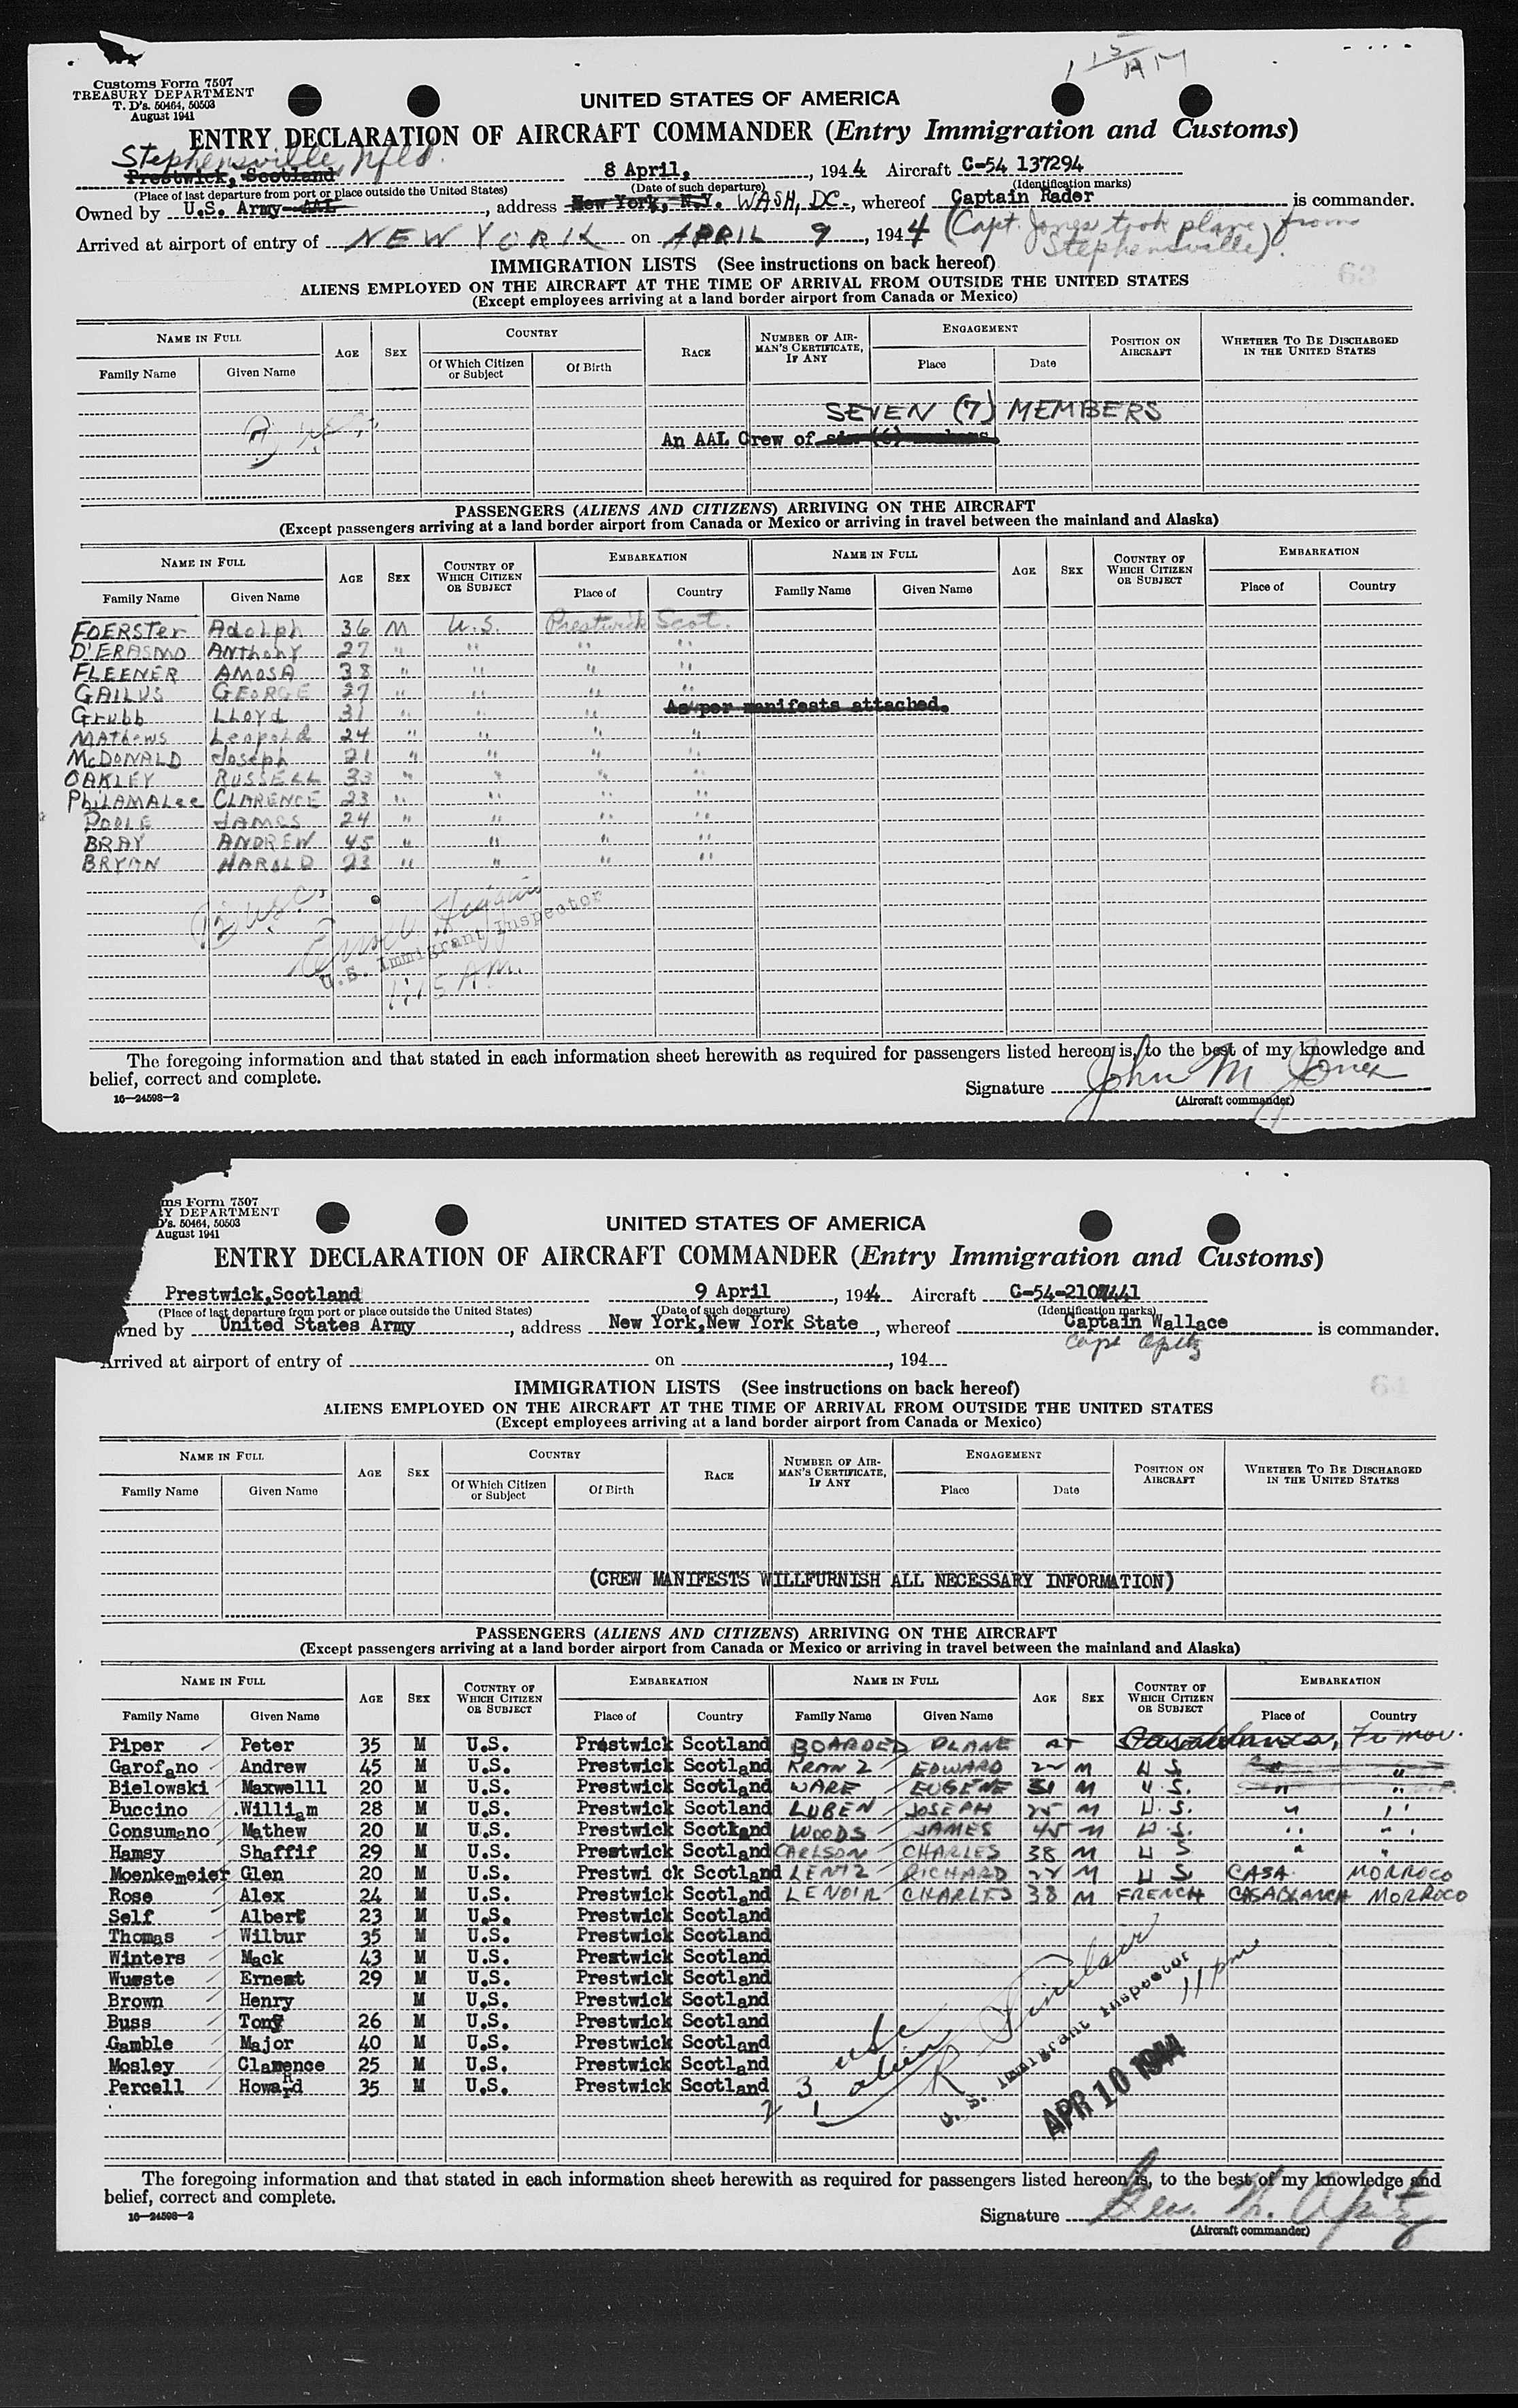 1 15 AM
Customs Form 7507
TREASURY DEPARTMENT
T. D's. 50464, 50503
August 1941
UNITED STATES OF AMERICA
ENTRY DECLARATION OF AIRCRAFT COMMANDER (Entry Immigration and Customs)
Stephensville, Nfld.
Prestwick, Scotland 8 April, , 1944 Aircraft C-54 137294
(Place of last departure from port or place outside the United States) (Date of such departure) (Identification marks)
Owned by U.S. Army-AAL , address New York, N.Y. WASH, DC. , whereof Captain Rader is commander.
Arrived at airport of entry of NEW YORK on APRIL 9 , 1944 (Capt. Jones took plane from
Stephensville).
63
IMMIGRATION LISTS (See instructions on back hereof)
ALIENS EMPLOYED ON THE AIRCRAFT AT THE TIME OF ARRIVAL FROM OUTSIDE THE UNITED STATES
(Except employees arriving at a land border airport from Canada or Mexico)
NAME IN FULL AGE SEX COUNTRY RACE NUMBER OF AIRMAN'S CERTIFICATE, IF ANY ENGAGEMENT POSITION ON AIRCRAFT WHETHER TO BE DISCHARGED IN THE UNITED STATES
Family Name Given Name Of Which Citizen or Subject Of Birth Place Date
SEVEN (7) MEMBERS
An AAL Crew of six (6) members.
PASSENGERS (ALIENS AND CITIZENS) ARRIVING ON THE AIRCRAFT
(Except passengers arriving at a land border airport from Canada or Mexico or arriving in travel between the mainland and Alaska)
NAME IN FULL AGE SEX COUNTRY OF WHICH CITIZEN OR SUBJECT EMBARKATION NAME IN FULL AGE SEX COUNTRY OF WHICH CITIZEN OR SUBJECT EMBARKATION
Family Name Given Name Place of Country Family Name Given Name Place of Country
FOERSTer Adolph 36 M U.S. Prestwick Scot.
D'ERASMO ANthony 27 " " " "
FLEENER AMOSA 38 " " " "
GAILUS GEORGE 27 " " " "
Grubb LLoyd 31 " " " As per manifests attached.
MAThews Leopold 24 " " " "
McDONALD Joseph 21 " " " "
OAKLEY RUSSELL 33 " " " "
PhiLAMALee CLARENCE 23 " " " "
POOLE JAMES 24 " " " "
BRAY ANDREW 45 " " " "
BRYAN HAROLD 23 " " " "
12 USC
U.S. Immigrant Inspector
1:15 A.M.
The foregoing information and that stated in each information sheet herewith as required for passengers listed hereon is, to the best of my knowledge and
belief, correct and complete.
Signature John M Jones
16—24598—2 (Aircraft commander)
ms Form 7507
Y DEPARTMENT
D's. 50464, 50503
August 1941
UNITED STATES OF AMERICA
ENTRY DECLARATION OF AIRCRAFT COMMANDER (Entry Immigration and Customs)
Prestwick,Scotland 9 April , 1944 Aircraft
(Place of last departure from port or place outside the United States) (Date of such departure) (Identification marks)
wned by United States Army , address New York,New York State , whereof Captain Wallace is commander.
Capt Apitz
Arrived at airport of entry of on , 194
64
IMMIGRATION LISTS (See instructions on back hereof)
ALIENS EMPLOYED ON THE AIRCRAFT AT THE TIME OF ARRIVAL FROM OUTSIDE THE UNITED STATES
(Except employees arriving at a land border airport from Canada or Mexico)
NAME IN FULL AGE SEX COUNTRY RACE NUMBER OF AIRMAN'S CERTIFICATE, IF ANY ENGAGEMENT POSITION ON AIRCRAFT WHETHER TO BE DISCHARGED IN THE UNITED STATES
Family Name Given Name Of Which Citizen or Subject Of Birth Place Date
(CREW MANIFESTS WILLFURNISH ALL NECESSARY INFORMATION)
PASSENGERS (ALIENS AND CITIZENS) ARRIVING ON THE AIRCRAFT
(Except passengers arriving at a land border airport from Canada or Mexico or arriving in travel between the mainland and Alaska)
NAME IN FULL AGE SEX COUNTRY OF WHICH CITIZEN OR SUBJECT EMBARKATION NAME IN FULL AGE SEX COUNTRY OF WHICH CITIZEN OR SUBJECT EMBARKATION
Family Name Given Name Place of Country Family Name Given Name Place of Country
Piper Peter 35 M U.S. Prestwick Scotland BOARDED PLANE AT Casablanca, Fr mor.
Garofano Andrew 45 M U.S. Prestwick Scotland KRANZ EDWARD 22 M U S. " "
Bielowski Maxwelll 20 M U.S. Prestwick Scotland WARE EUGENE 31 M U.S. " "
Buccino .William 28 M U.S. Prestwick Scotland LUBEN JOSEPH 25 M U.S. " "
Consumano Mathew 20 M U.S. Prestwick Scotkand WOODS JAMES 45 M U.S. " "
Hamsy Shaffif 29 M U.S. Prestwick Scotland CARLSON CHARLES 38 M U S " "
Moenkemeier Glen 20 M U.S. Prestwi ck Scotland LENTZ RICHARD 22 M U S. CASA MORROCO
Rose Alex 24 M U.S. Prestwick Scotland LENOIR CHARLES 38 M FRENCH CASABLANCA MORROCO
Self Albert 23 M U.S. Prestwick Scotland
Thomas Wilbur 35 M U.S. Prestwick Scotland
Winters Mack 43 M U.S. Prestwick Scotland
Wueste Ernest 29 M U.S. Prestwick Scotland
Brown Henry M U.S. Prestwick Scotland
Buss Tony 26 M U.S. Prestwick Scotland
Gamble Major 40 M U.S. Prestwick Scotland
Mosley Clarence 25 M U.S. Prestwick Scotland
Percell Howard 35 M U.S. Prestwick Scotland
23 usc
1 alien
R Sinclair
U. S. Immigrant Inspector
11 pm
APR 10 1944
The foregoing information and that stated in each information sheet herewith as required for passengers listed hereon is, to the best of my knowledge and
belief, correct and complete.
Signature Geo. Th. Apitz
16—24598—2 (Aircraft commander)